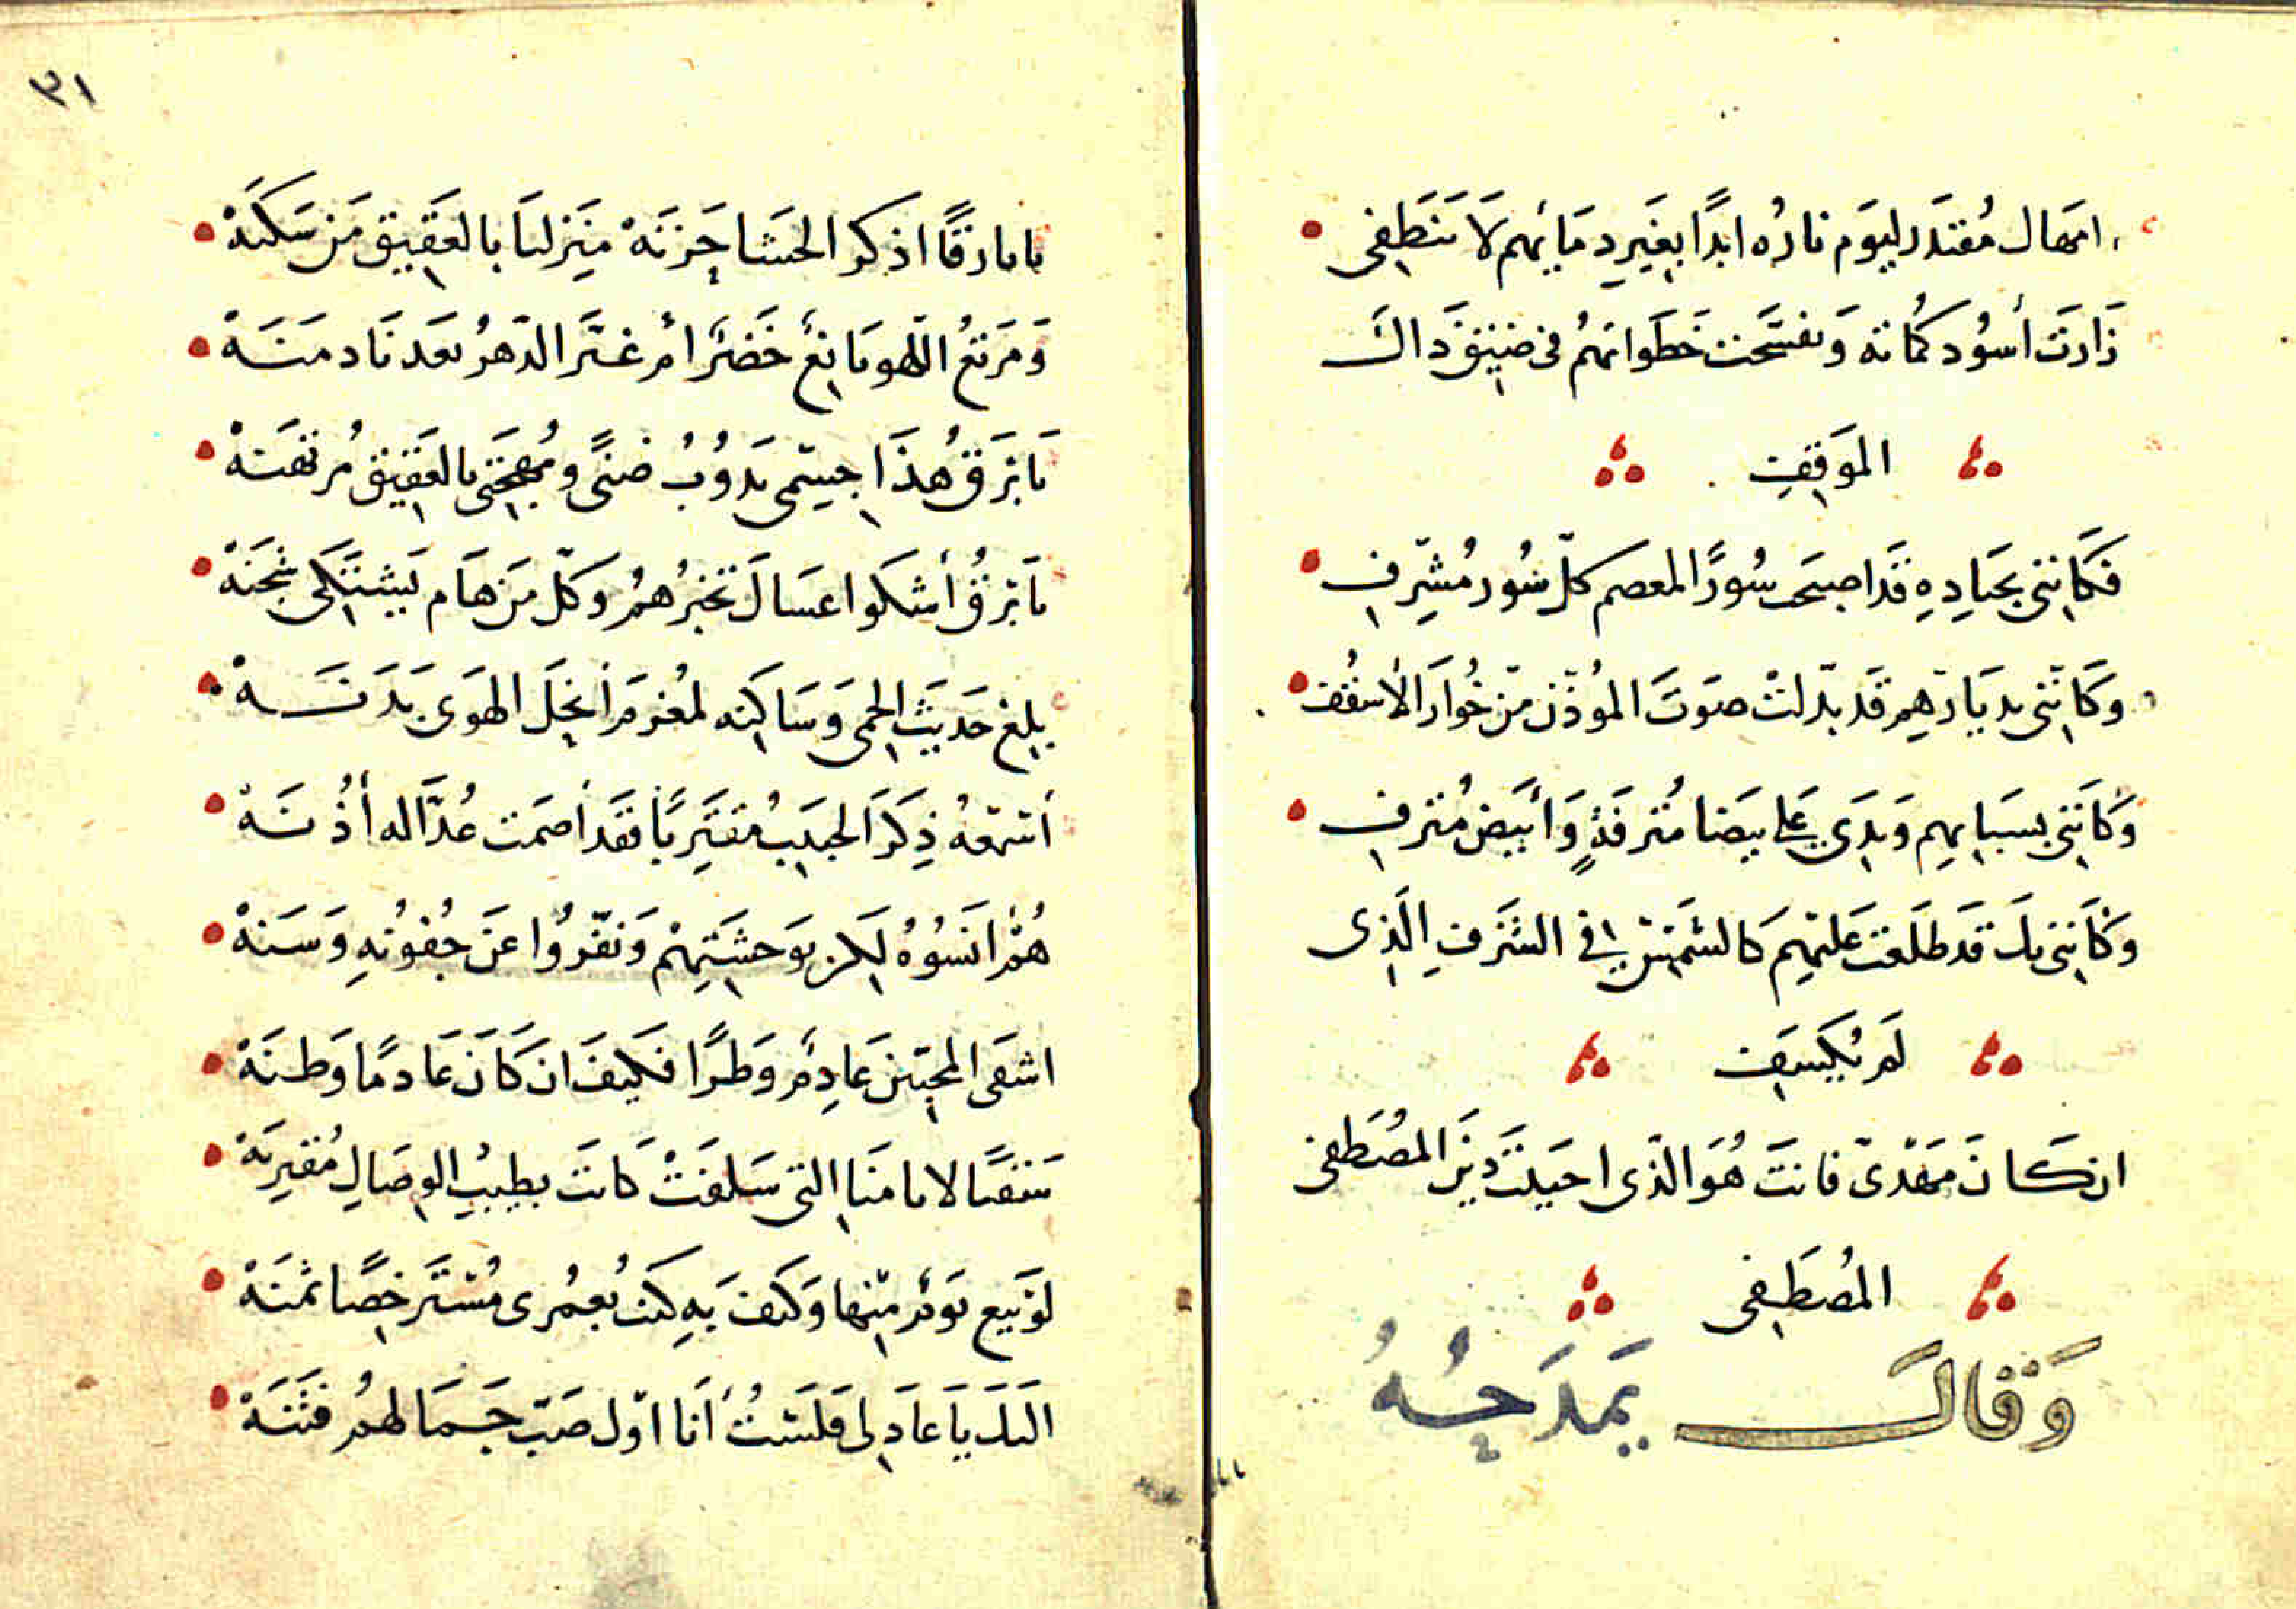 امهال مقتدر ليوم ناره ابدًا بغير دمائهم لا تنطفى
زارت أسود كماته وتفسّحت خطواتهم فى ضيق ذاك
الموقف
فكانّنى بجياده قد اصبحت سورًا لمعصم كلّ سور مشرف
وكانّنى بديارهم قد بدّلت صوت المؤذّن من خوار الأسقف
وكانّنى بسبايهم ويدى على بيضا مترفةٍ وأبيض مترف
وكانّنى بك قد طلعت عليهم كالشمس فى الشرف الذى
لم يكسف
ان كان مهدىّ فانت هو الذى احييت دين المصطفى
المصطفى
وَقَالَ يَمدَحُهُ
٣١
يا بارقًا اذكر الحشا حزنه منزلنا بالعقيق من سكنه
ومرتع اللهو يانع خضر ام غيّر الدّهر بعدنا دمنه
يا برق هذا جسمى يذوب ضنًى ومهجتى بالعقيق مرتهنه
يا برق أشكو عساك تخبرهم وكلّ من هام يشتكى شجنه
بلغ حديث الحمى وساكنه لمغرم أنحل الهوى بدنه
أسمعه ذكر الحبيب مقتربًا فقد أصمت عذّاله أذنه
هم انسوه لكن بوحشتهم ونفّروا عن جفونه وسنه
اشقى المحبّين عادم وطرًا فكيف ان كان عادمًا وطنه
سقيًا لايامنا التى سلفت كانت بطيب الوصال مقترنه
لو بيع يوم منها وكيف به كنت بعمرى مسترخصًا ثمنه
اليك يا عاذلى فلست أنا اوّل صبّ جمالهم فتنه